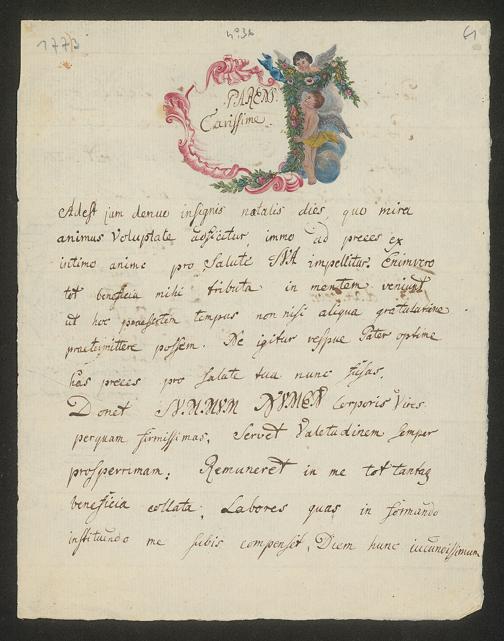 1773
N° 36
61
PARENS
Carissime.
Adest jam denuo insignis natalis dies, quo mira
animus Voluptate adficitur, immo ad preces ex
intimo anime pro Salute impellitur. Enimvero
tot beneficia mihi tributa in mentem veniunt
ut hoc praesertim tempus non nisi aliqua gratulatione
praetermittere possem. Ne igitur respue Pater optime
has preces pro Salute tua nunc fusas.
Donet SUMMUM NUMEN Corporis Vires
perquam firmissimas, Servet Valetudinem semper
prosperrimam; Remuneret in me tot tantaq
beneficia collata, Labores quas in formando
instituendo me subis compenset, Diem hunc iucundissimum